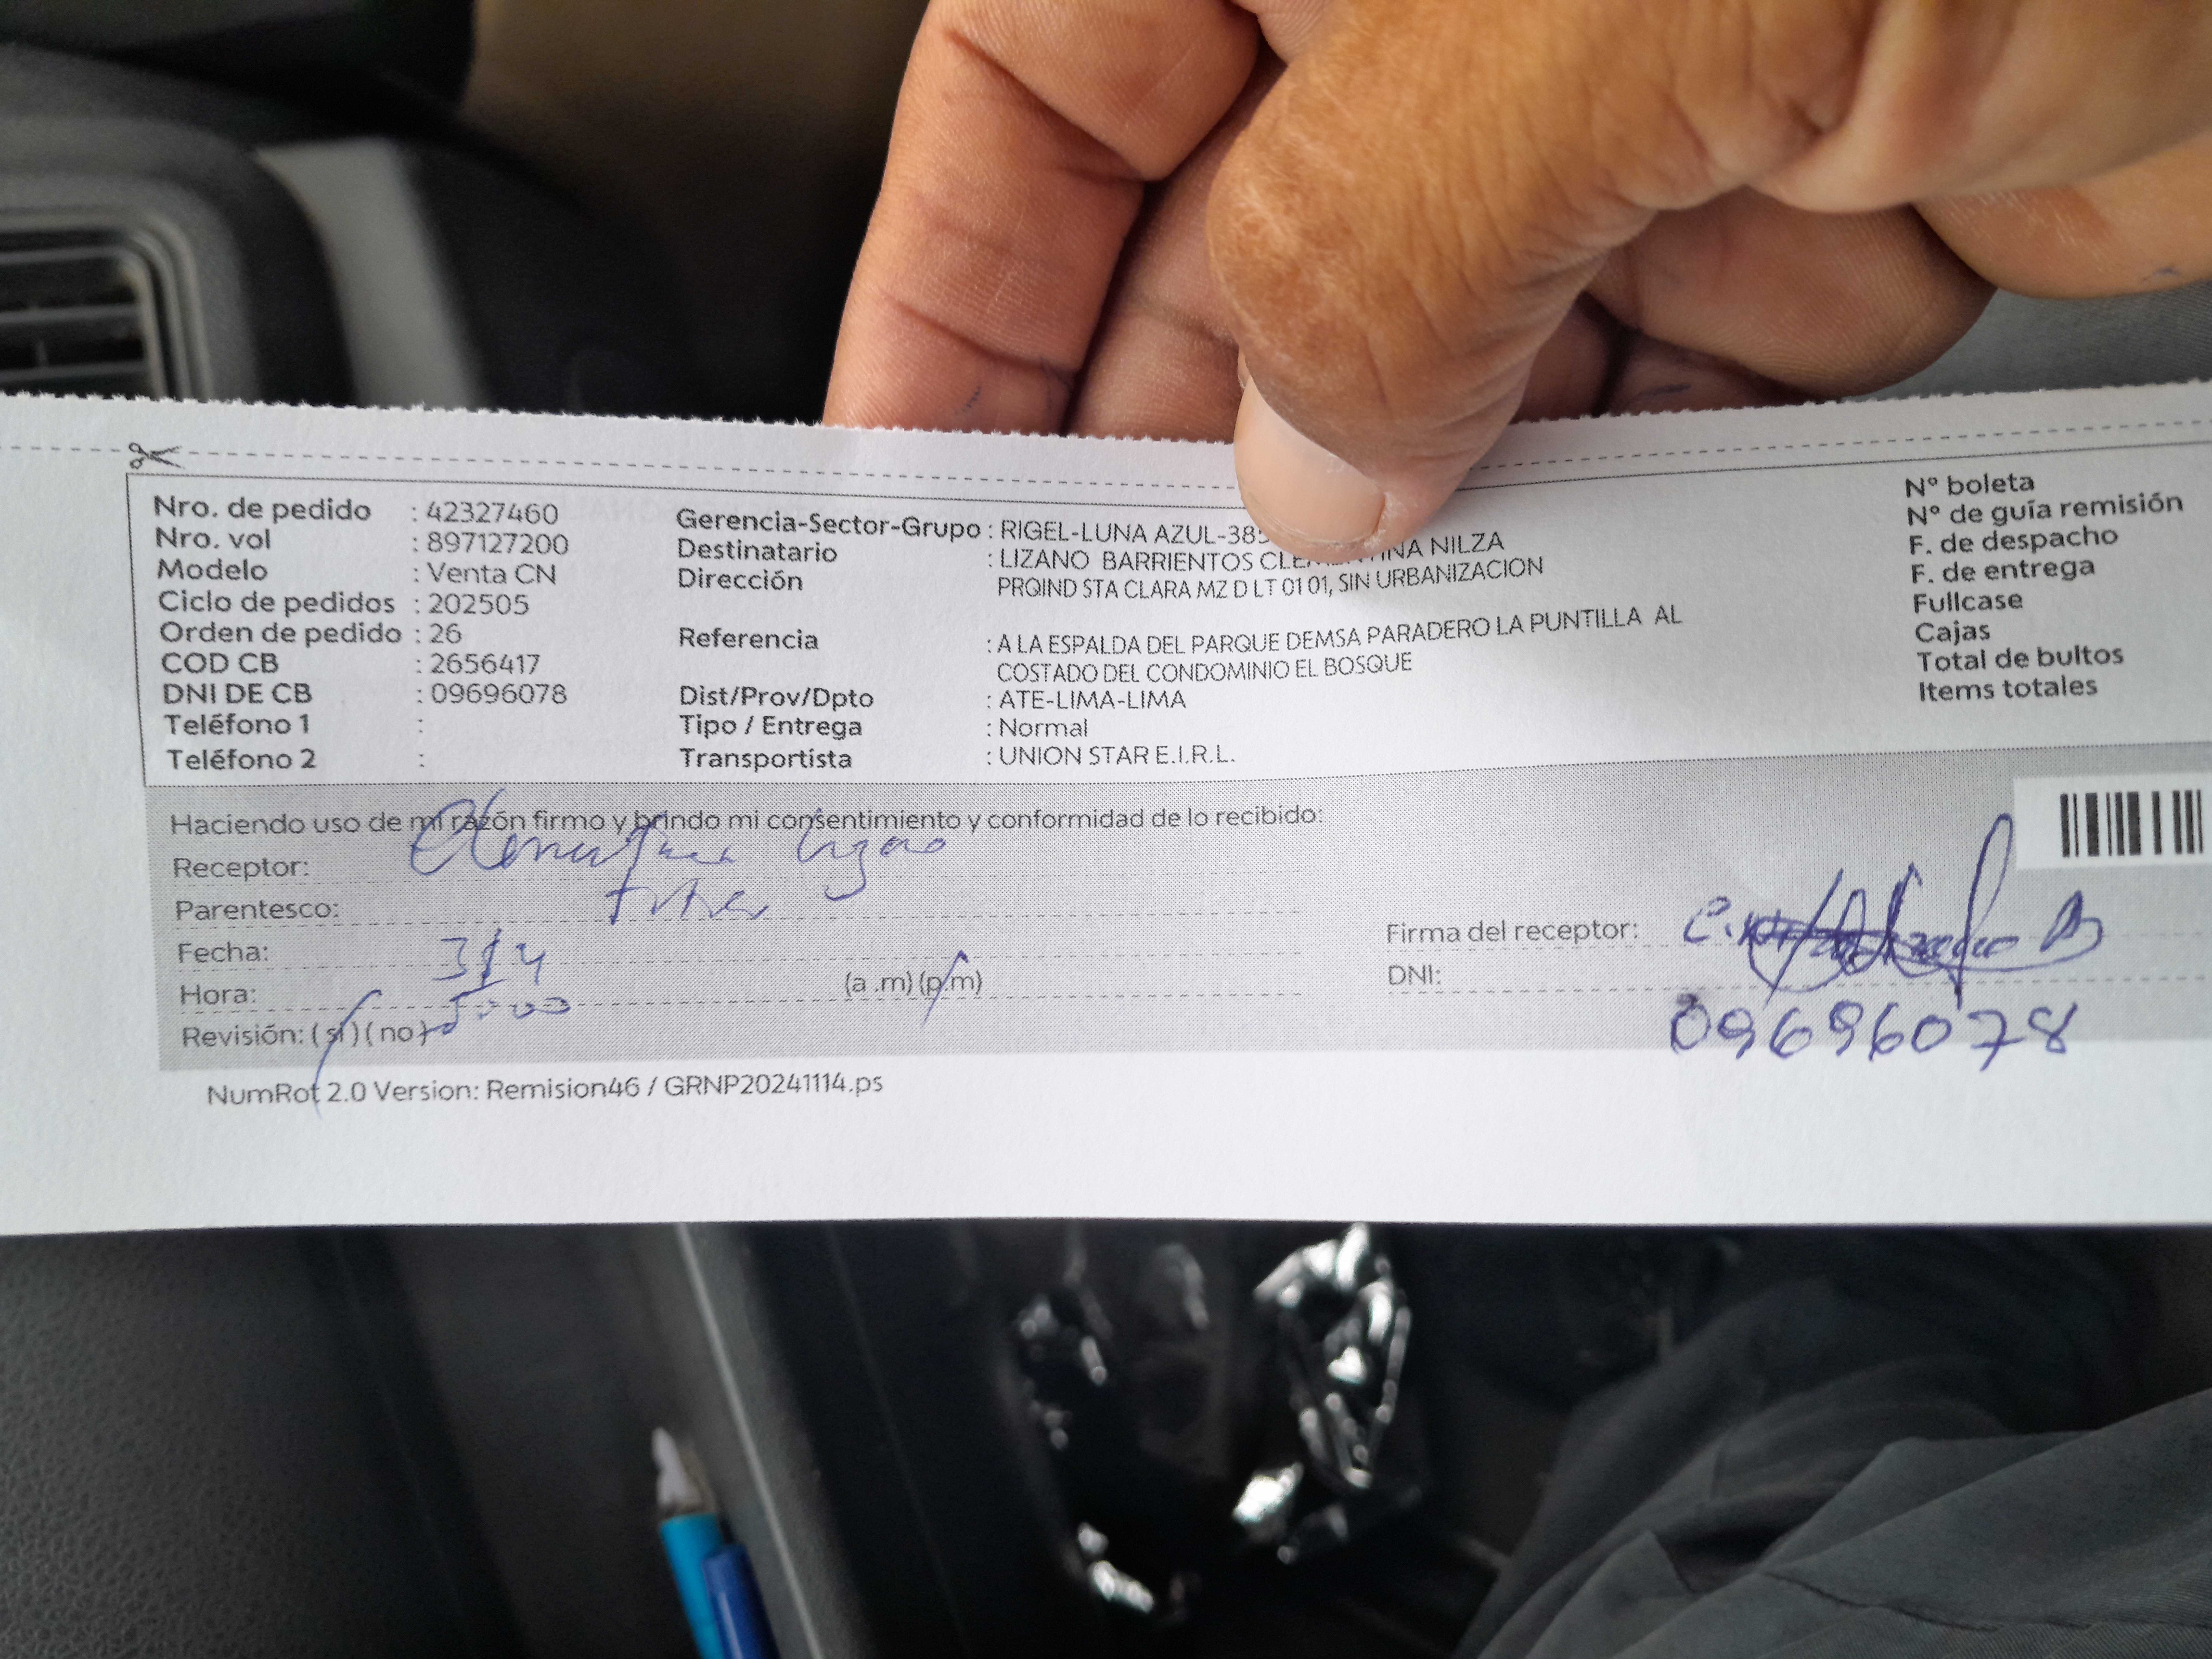 Nro. de pedido : 42327460
Nro. vol : 897127200
Modelo : Venta CN
Ciclo de pedidos : 202505
Orden de pedido : 26
COD CB : 2656417
DNI DE CB : 09696078
Teléfono 1 :
Teléfono 2 :
Gerencia-Sector-Grupo : RIGEL-LUNA AZUL-385
Destinatario : LIZANO BARRIENTOS NILZA
Dirección PRQIND STA CLARA MZ D LT 01 01, SIN URBANIZACION
Referencia : A LA ESPALDA DEL PARQUE DEMSA PARADERO LA PUNTILLA AL
COSTADO DEL CONDOMINIO EL BOSQUE
Dist/Prov/Dpto : ATE-LIMA-LIMA
Tipo / Entrega : Normal
Transportista : UNION STAR E.I.R.L.
Nº boleta
Nº de guía remisión
F. de despacho
F. de entrega
Fullcase
Cajas
Total de bultos
Items totales
Haciendo uso de mi razón firmo y brindo mi consentimiento y conformidad de lo recibido:
Receptor:
Parentesco:
Fecha: 3/4
Hora: (a .m) (p.m)
Revisión: ( si ) ( no )
Firma del receptor:
DNI: 09696078
NumRot 2.0 Version: Remision46 / GRNP20241114.ps